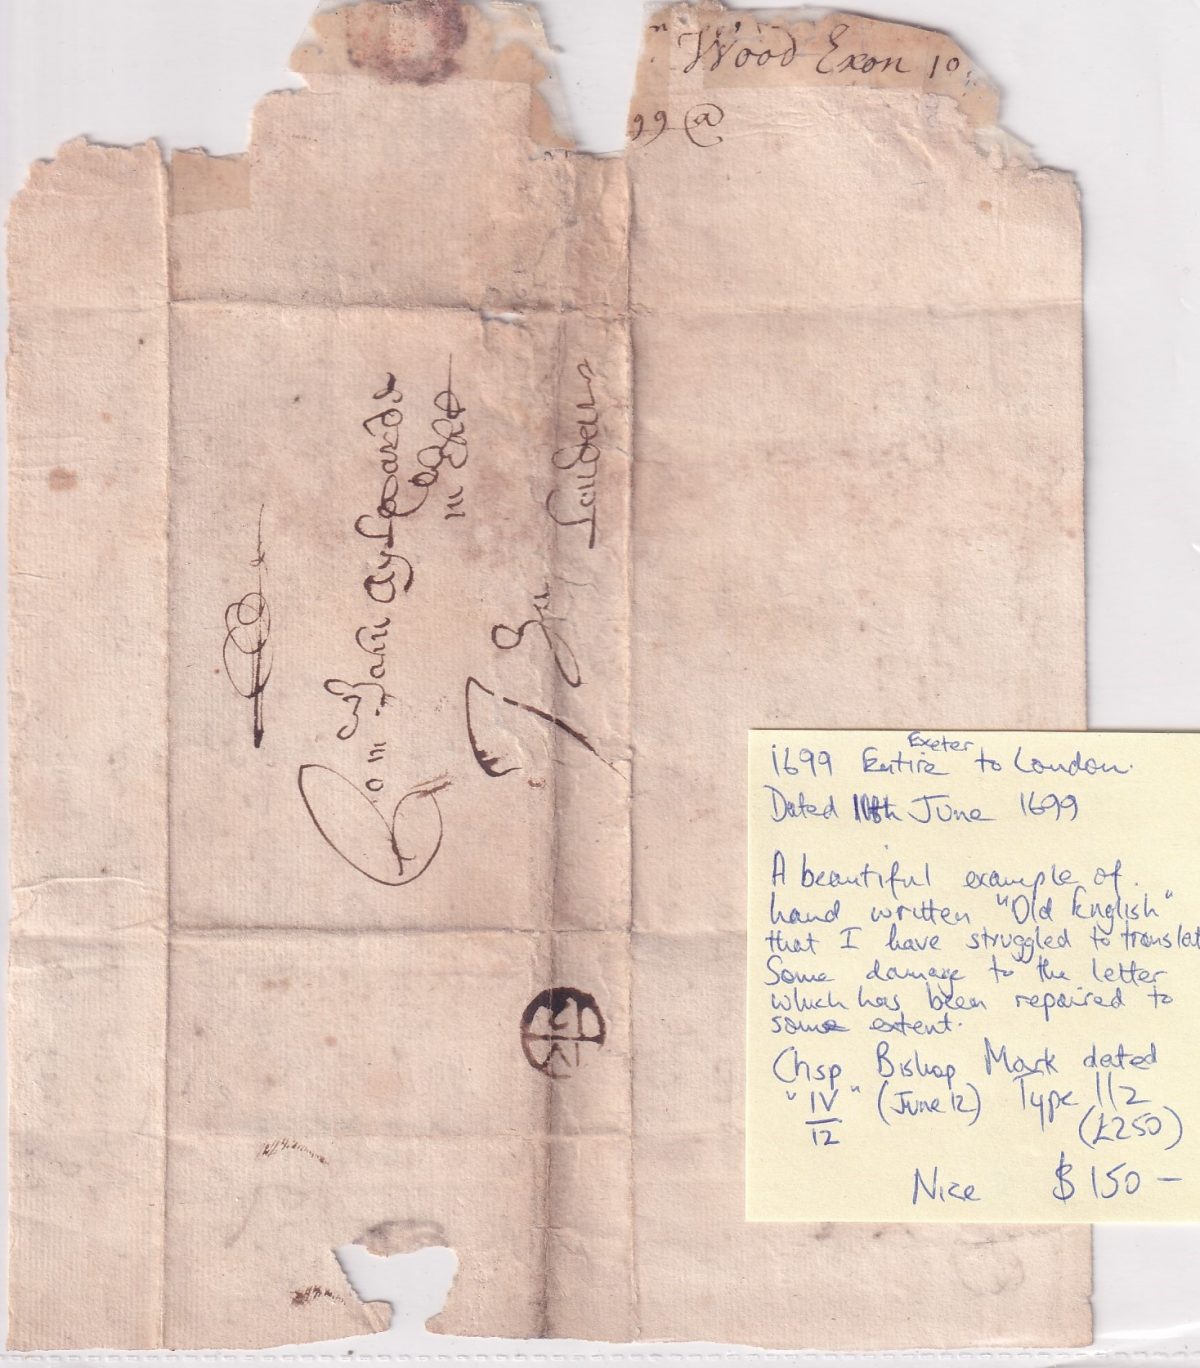 Wood Exon 10
99 @
To
mr. John Ayl
m
In
London
1699 Entire Exeter to London.
Dated 10th June 1699
A beautiful example of
hand written "Old English"
that I have struggled to translat
Some damage to the letter
which has been repaired to
some extent.
Crisp Bishop Mark dated
"IV/12" (June 12) Type 112
(£250)
Nice $150 —